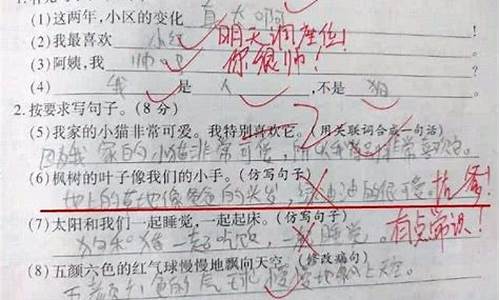 (1)这两年,小区的变化 真大啊
(2)我最喜欢 小红 明天调座位!
(3)阿姨,我 帅吗 你很帅!
(4) 我 是 人 ,不是 狗
2.按要求写句子。(8分)
(5)我家的小猫非常可爱。我特别喜欢它。(用关联词合成一句话)
因为我家的小猫非常可爱,所以我非常喜欢它。
(6)枫树的叶子像我们的小手。(仿写句子)
地上的草地像爸爸的头发,绿油油的很可爱。
(7)太阳和我们一起睡觉,一起起床。(仿写句子)
一起吃饭,一起睡觉。 有点常识!
(8)五颜六色的红气球慢慢地飘向天空。(修改病句)
五颜六色的气球慢慢地飘上天空。